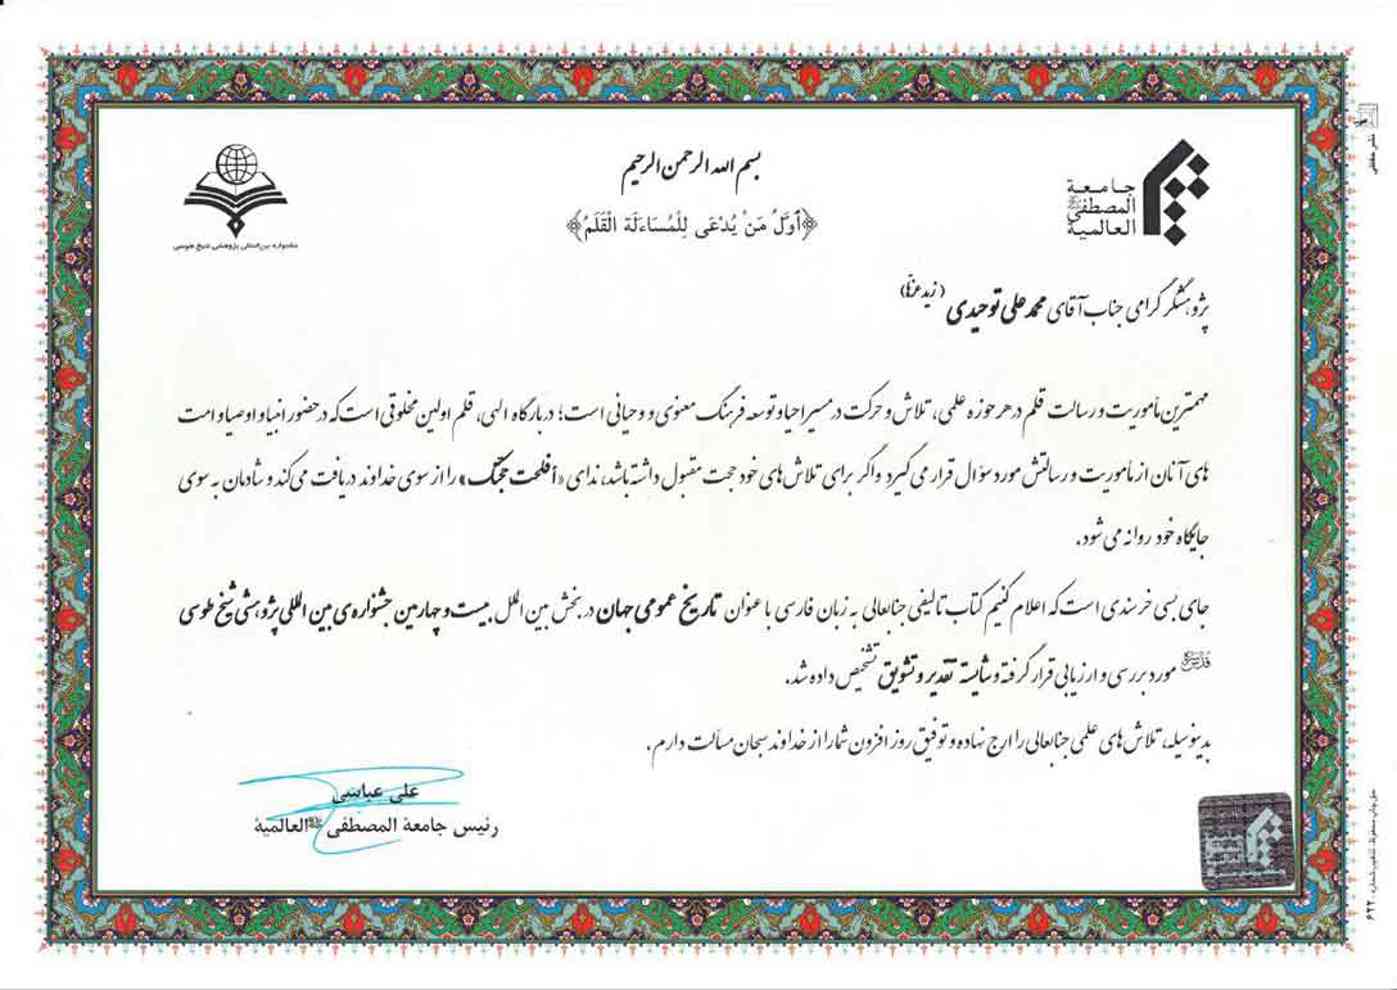 بسم الله الرحمن الرحیم
﴿أَوَّلُ مَنْ يُدْعَى لِلْمُسَاءَلَة الْقَلَمُ﴾
جامعة
المصطفی ﷺ
العالمیة
جشنواره بین‌المللی پژوهشی شیخ طوسی
پژوهشگر گرامی جناب آقای محمدعلی توحیدی (زیدعزّه)
مهمترین مأموریت و رسالت قلم در هر حوزه علمی، تلاش و حرکت در مسیر احیا و توسعه فرهنگ معنوی و وحیانی است؛ در بارگاه الهی، قلم اولین مخلوقی است که در حضور انبیا و اوصیا و امت
های آنان از مأموریت و رسالتش مورد سؤال قرار می گیرد و اگر برای تلاش های خود حجت مقبول داشته باشد، ندای «أفلحت حجتک» را از سوی خداوند دریافت می کند و شادمان به سوی
جایگاه خود روانه می شود.
جای بسی خرسندی است که اعلام کنیم کتاب تالیفی جنابعالی به زبان فارسی با عنوان تاریخ عمومی جهان در بخش بین الملل بیست و چهارمین جشنواره ی بین المللی پژوهشی شیخ طوسی
قدّس سرّه مورد بررسی و ارزیابی قرار گرفته و شایسته تقدیر و تشویق تشخیص داده شد.
بدینوسیله، تلاش های علمی جنابعالی را ارج نهاده و توفیق روز افزون شما را از خداوند سبحان مسألت دارم.
علی عباسی
رئیس جامعة المصطفی ﷺ العالمیة